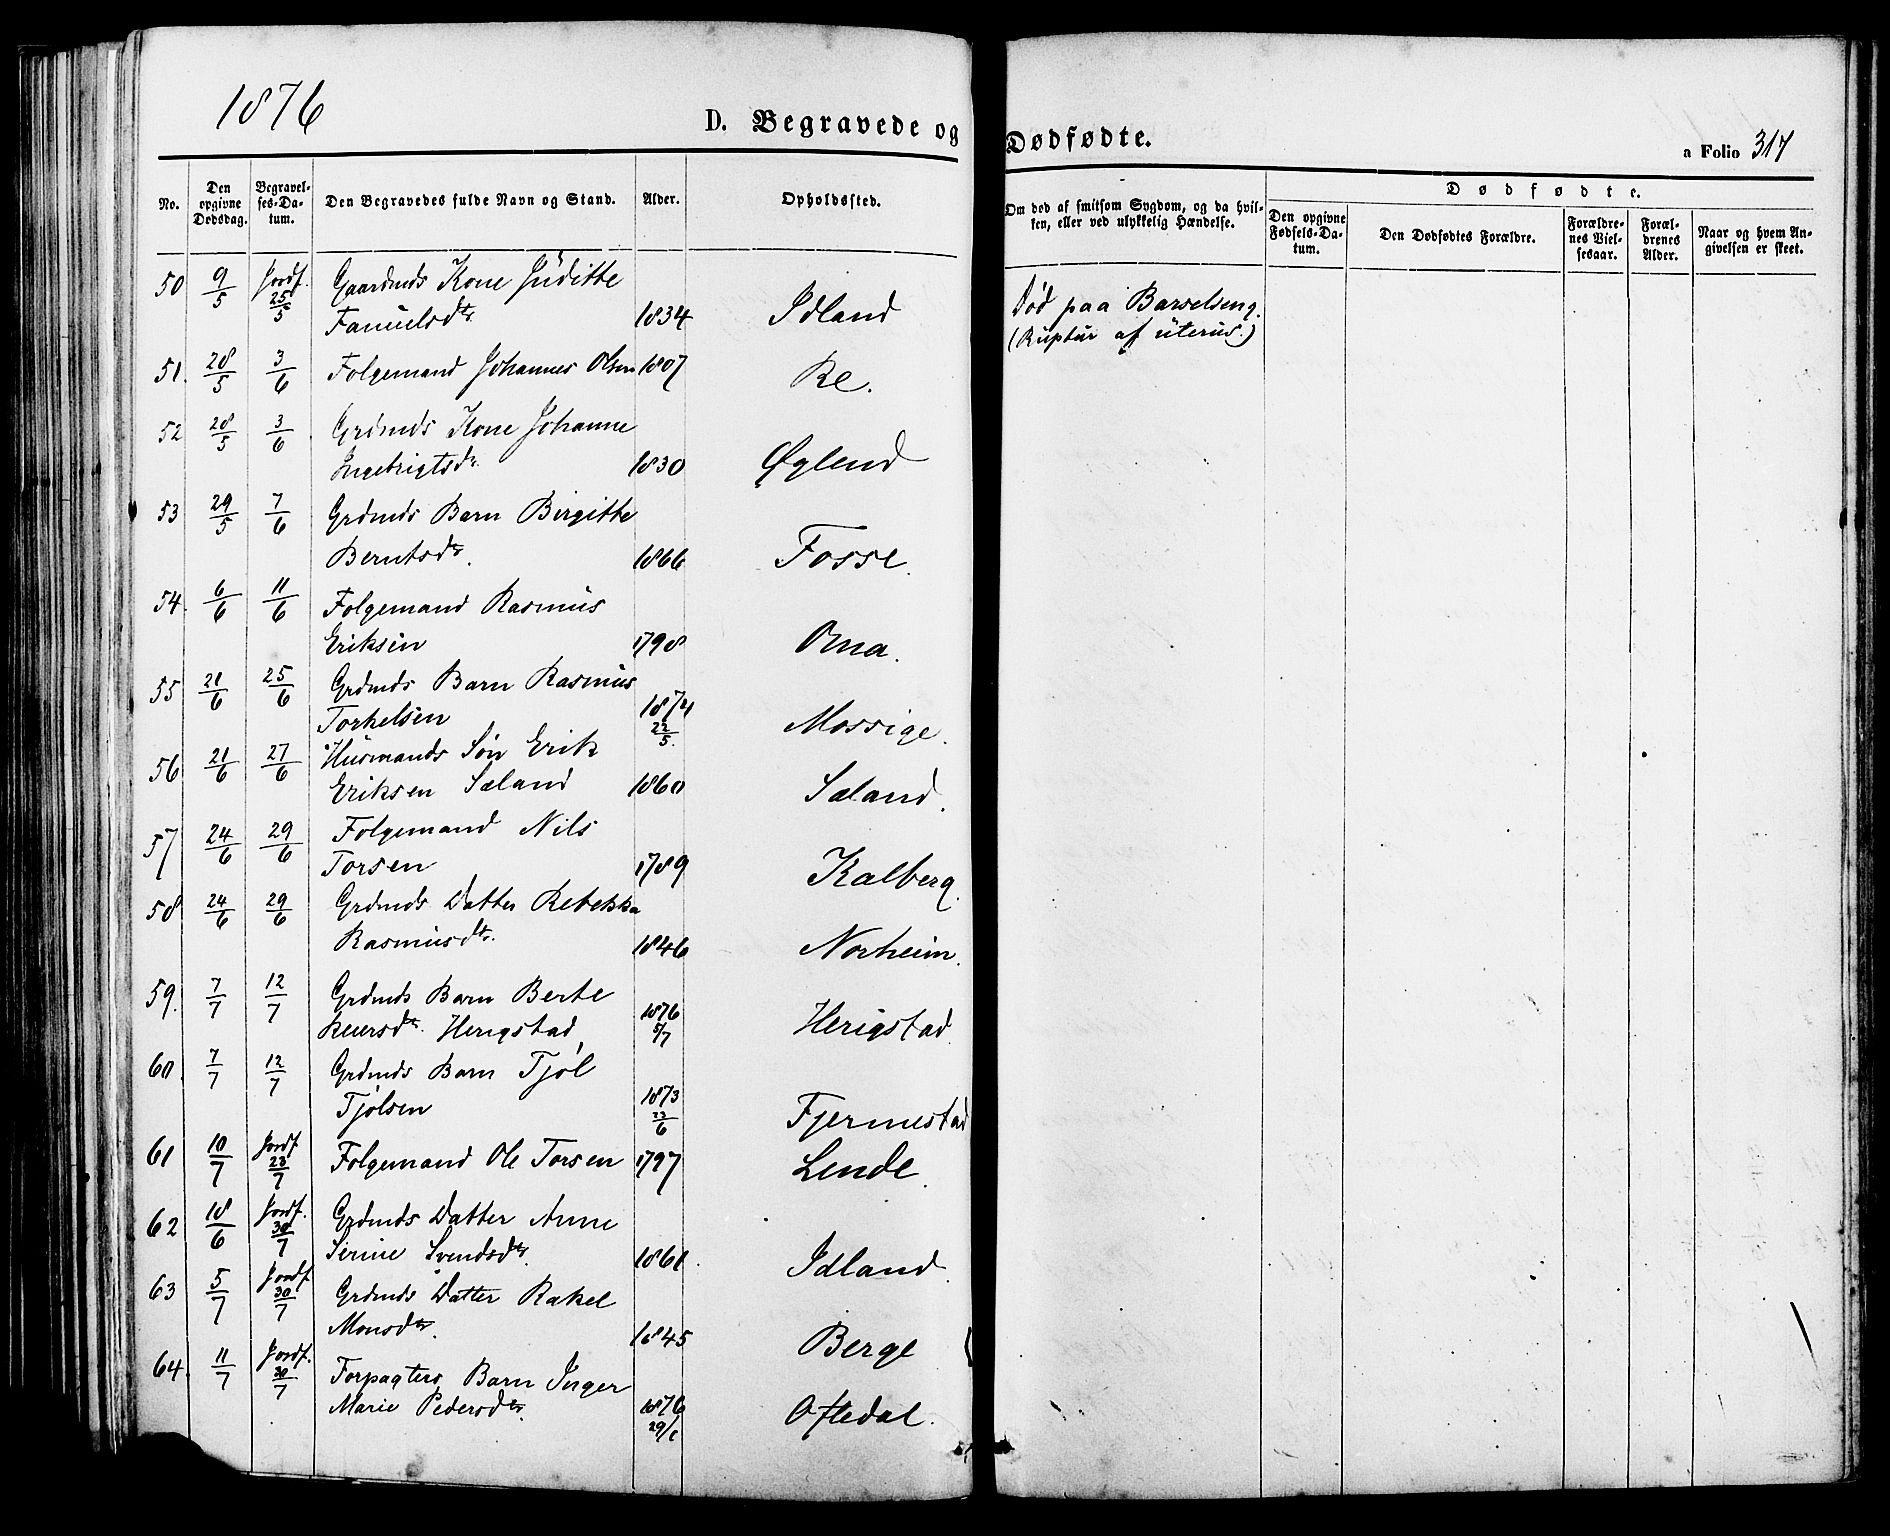 1876
D. Begravede og Dødfødte.
a Folio 317
No.
Den opgivne Dødsdag.
Begravelses-Datum.
Den Begravedes fulde Navn og Stand.
Alder.
Opholdssted.
Om død af smitsom Sygdom, og da hvilken, eller ved ulykkelig Hændelse.
Dødfødte.
Den opgivne Fødsels-Datum.
Den Dødfødtes Forældre.
Forældrenes Vielsesaar.
Forældrenes Alder.
Naar og hvem Angivelsen er skeet.
50 9/5 Jordf. 25/5 Gaardmds Kone Juditte
Samuelsdtr 1834 Idland Død paa Barselseng.
(Ruptur af uterus.)
51. 28/5 3/6 Folgemand Johannes Olsen 1807 Re.
52 28/5 3/6 Grdmds Kone Johanne
Ingebrigtsdr. 1830 Øglend
53 29/5 7/6 Grdmds Barn Birgitte
Berntsdtr. 1866 Fosse.
54. 6/6 11/6 Folgemand Rasmus
Eriksen 1798 Oma.
55 21/6 25/6 Grdmds Barn Rasmus
Torkelsen 1874 22/5. Mossige.
56 21/6 27/6 Husmands Søn Erik
Eriksen Sæland 1860 Sæland.
57 24/6 29/6 Folgemand Nils
Torsen 1789 Kalberg.
58 24/6 29/6 Grdmds Datter Rebekka
Rasmusdtr. 1846 Norheim.
59. 7/7 12/7 Grdmds Barn Berte
Reiersdtr. Herigstad 1876 5/7 Herigstad.
60. 7/7 12/7 Grdmds Barn Tjøl
Tjølsen 1873 22/6 Fjermestad
61 10/7 Jordf 23/7 Folgemand Ole Torsen 1797 Lende.
62 18/6 Jordf. 30/7 Grdmds Datter Anne
Serine Svendsdtr. 1861. Idland.
63 5/7 Jordf 30/7 Grdmds Datter Rakel
Monsdtr. 1845 Berge
64. 11/7 Jordf. 30/7 Forpagters Barn Inger
Marie Pedersdtr. 1876 Oftedal.